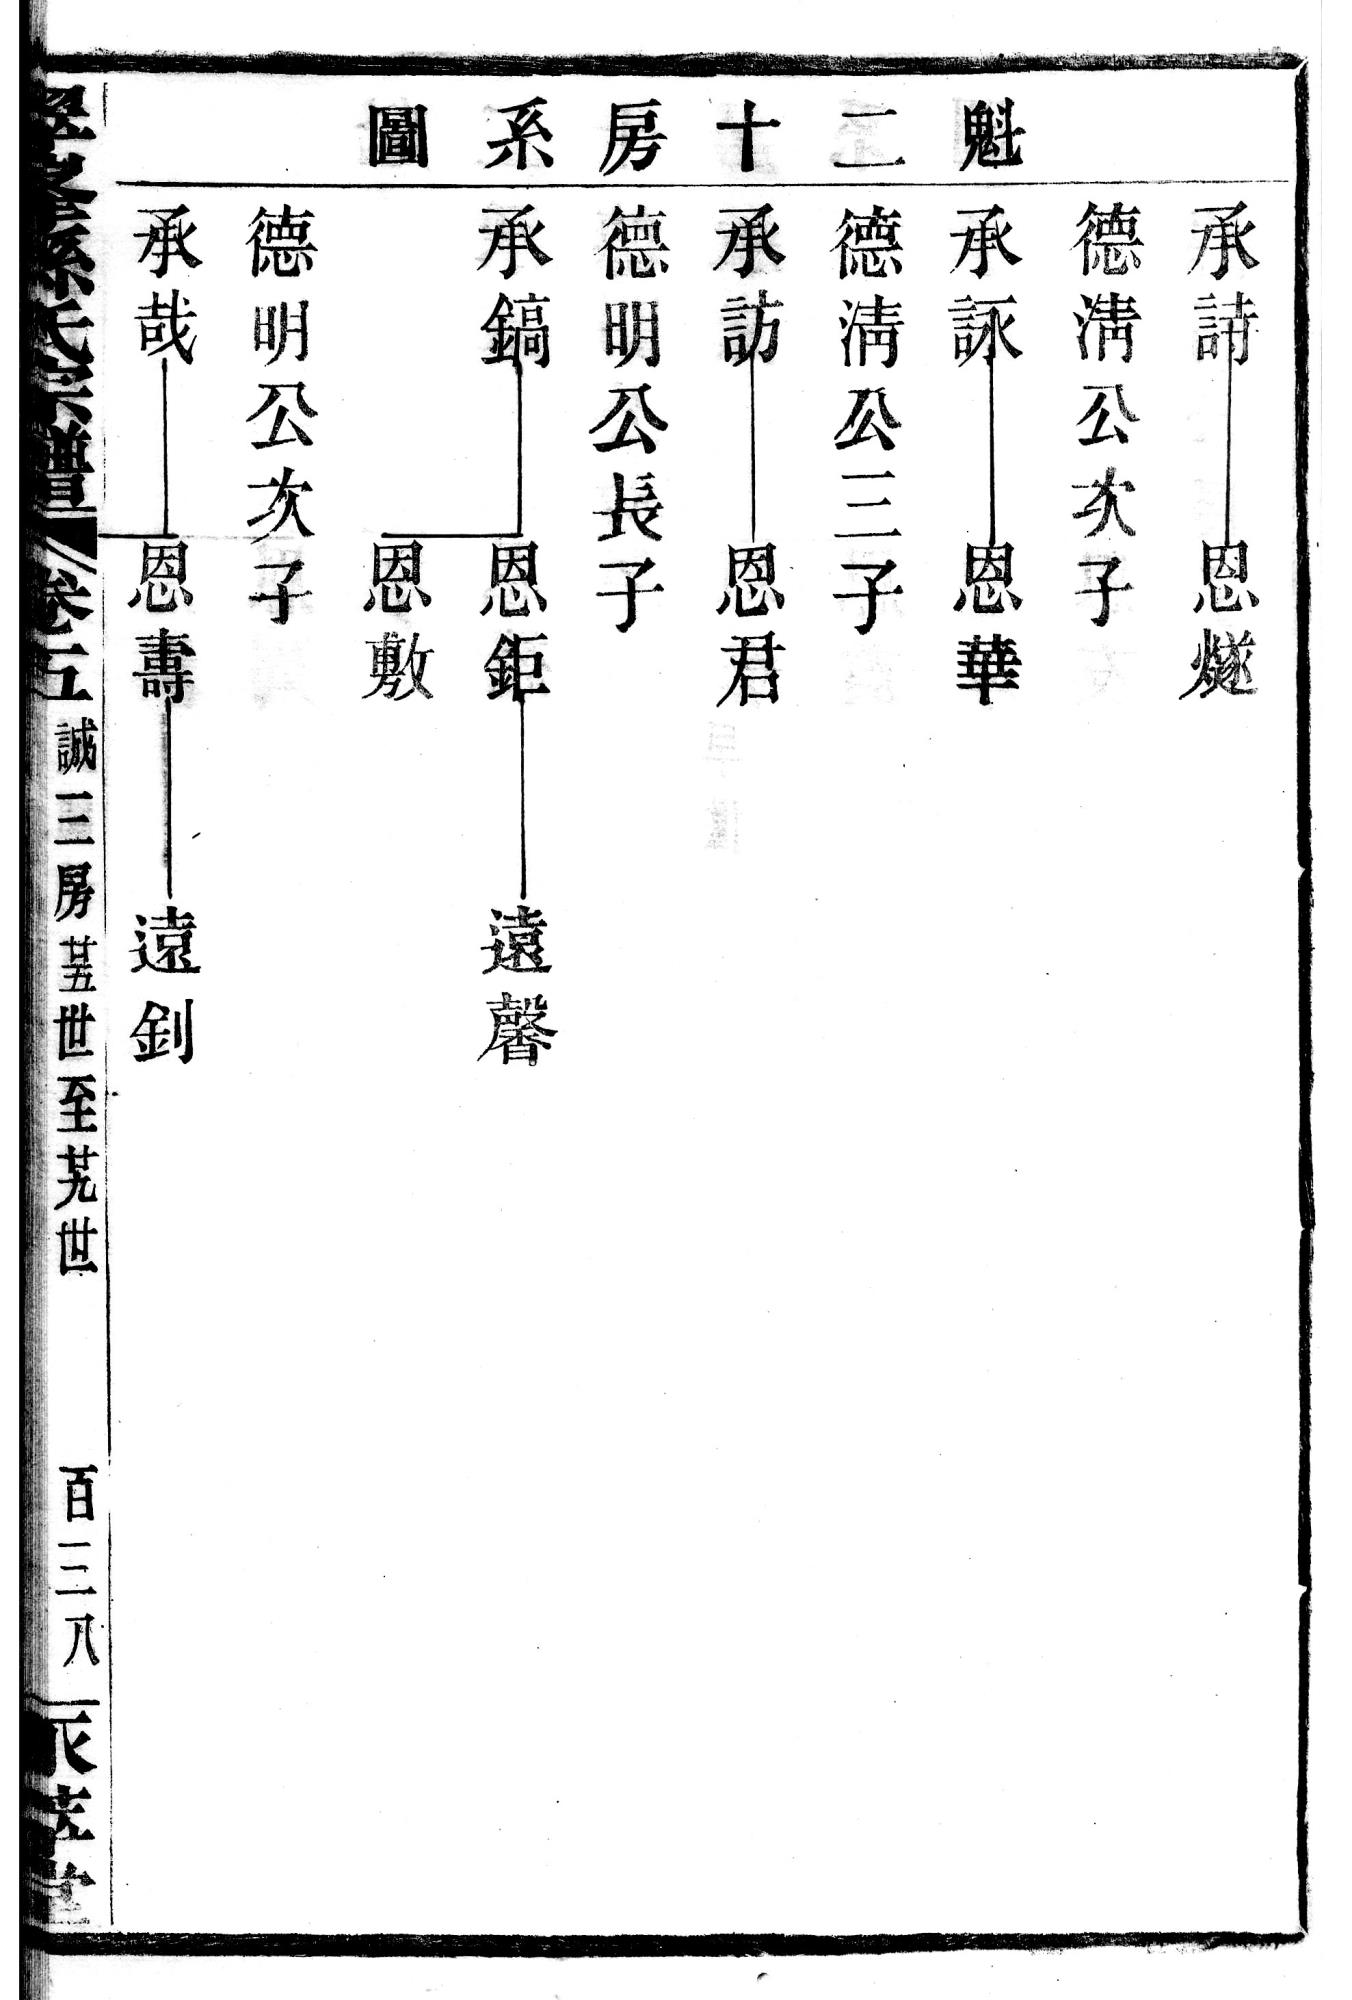 魁二十房系圖
承詩 恩燧
德淸公次子
承詠 恩華
德淸公三子
承訪 恩君
德明公長子
承鎬 恩鉅 遠馨
恩敷
德明公次子
承哉 恩壽 遠釗
孫氏宗譜
卷五
誠三房 廿五世至廿九世
百三八
堂